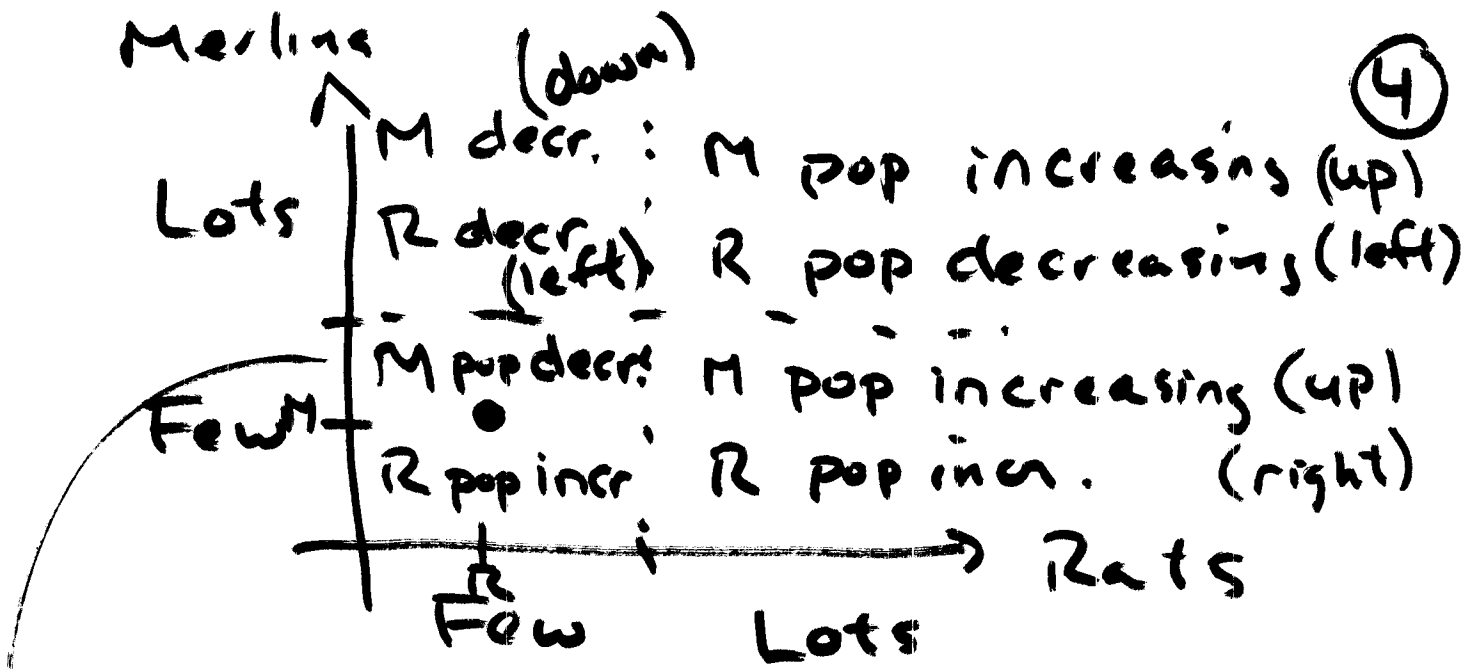 Merlins
(down)
4
M decr. M pop increasing (up)
Lots
R decr. R pop decreasing (left)
(left)
M pop decr. M pop increasing (up)
Few M
R pop incr R pop incr. (right)
R
Rats
Few Lots